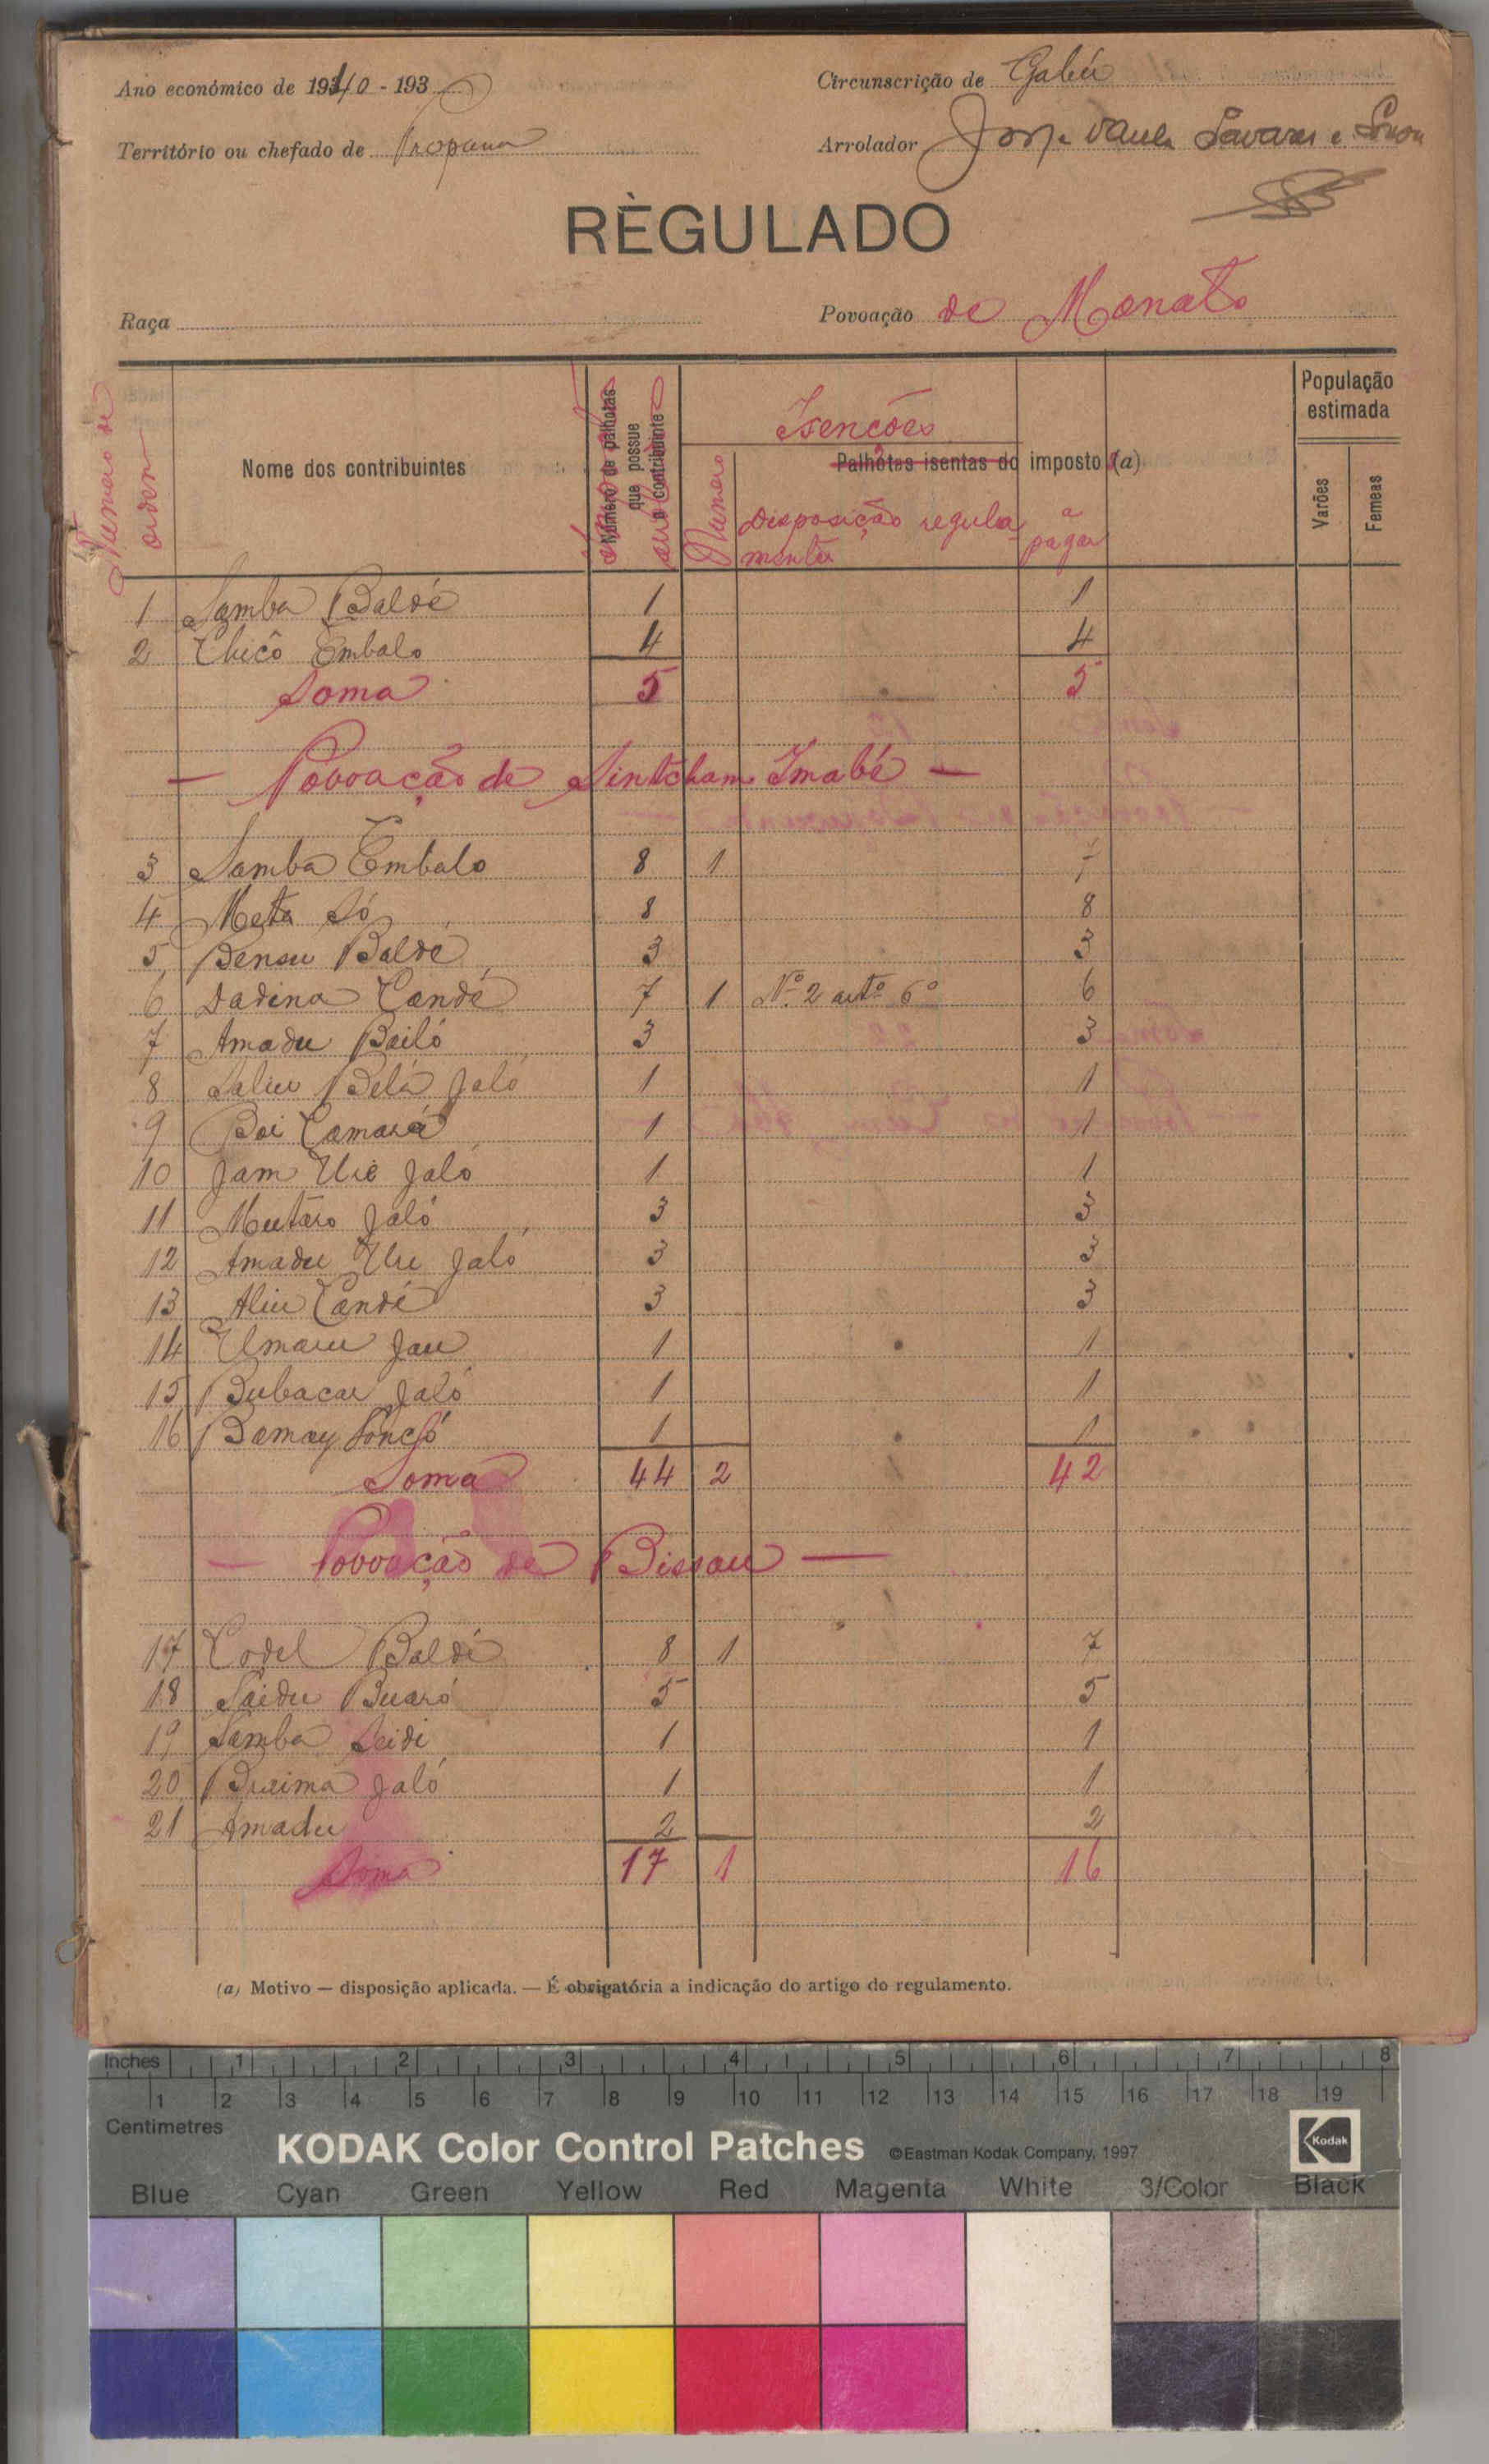 Ano económico de 1940 - 193
Circunscrição de Gabú
Território ou chefado de Propana
Arrolador José Tavares e
RÈGULADO
Raça
Povoação de Monato
Numero de ordem
Nome dos contribuintes
Número de palhotas que possue o contribuinte
Isenções
Palhotas isentas do imposto (a)
Numero
Disposição regulamentar
a pagar
População estimada
Varões
Femeas
1 Samba Baldé 1 1
2 Chicô Embalo 4 4
Soma 5 5
— Povoação de Sintcham Imabé —
3 Samba Embalo 8 1 7
4 Meta Só 8 8
5 Bensu Balde 3 3
6 Dadina Candé 7 1 Nº 2 artº 6º 6
7 Amadu Bailó 3 3
8 Saliu Belá Jaló 1 1
9 Boi Camará 1 1
10 Jam Urè Jaló 1 1
11 Mutaro Jaló 3 3
12 Amadu Uri Jaló 3 3
13 Aliu Candé 3 3
14 Umaru Jau 1 1
15 Bubacar Jaló 1 1
16 Bamay Soncó 1 1
Soma 44 2 42
— Povoação de Bissau —
17 Codel Baldé 8 1 7
18 Saidu Buaró 5 5
19 Samba Seidi 1 1
20 Buaima Jaló 1 1
21 Amadu 2 2
Soma 17 1 16
(a) Motivo — disposição aplicada. — É obrigatória a indicação do artigo do regulamento.
Inches 1 2 3 4 5 6 7 8
1 2 3 4 5 6 7 8 9 10 11 12 13 14 15 16 17 18 19
Centimetres
KODAK Color Control Patches ©Eastman Kodak Company, 1997 Kodak
Blue Cyan Green Yellow Red Magenta White 3/Color Black